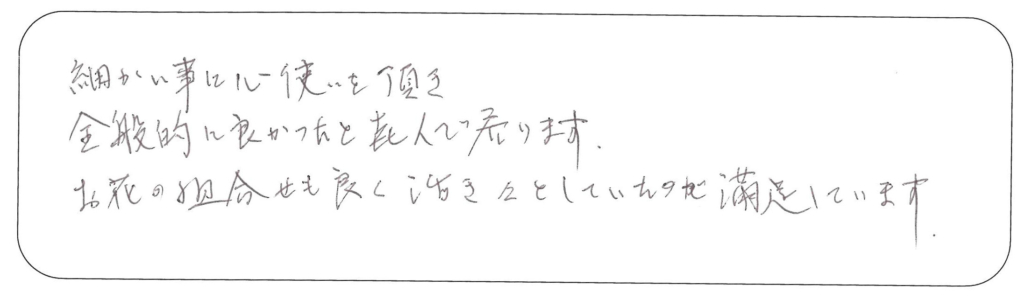 細かい事に心使いを頂き
全般的に良かったと喜んで居ります.
お花の組合せも良く活き々としていたので満足しています.